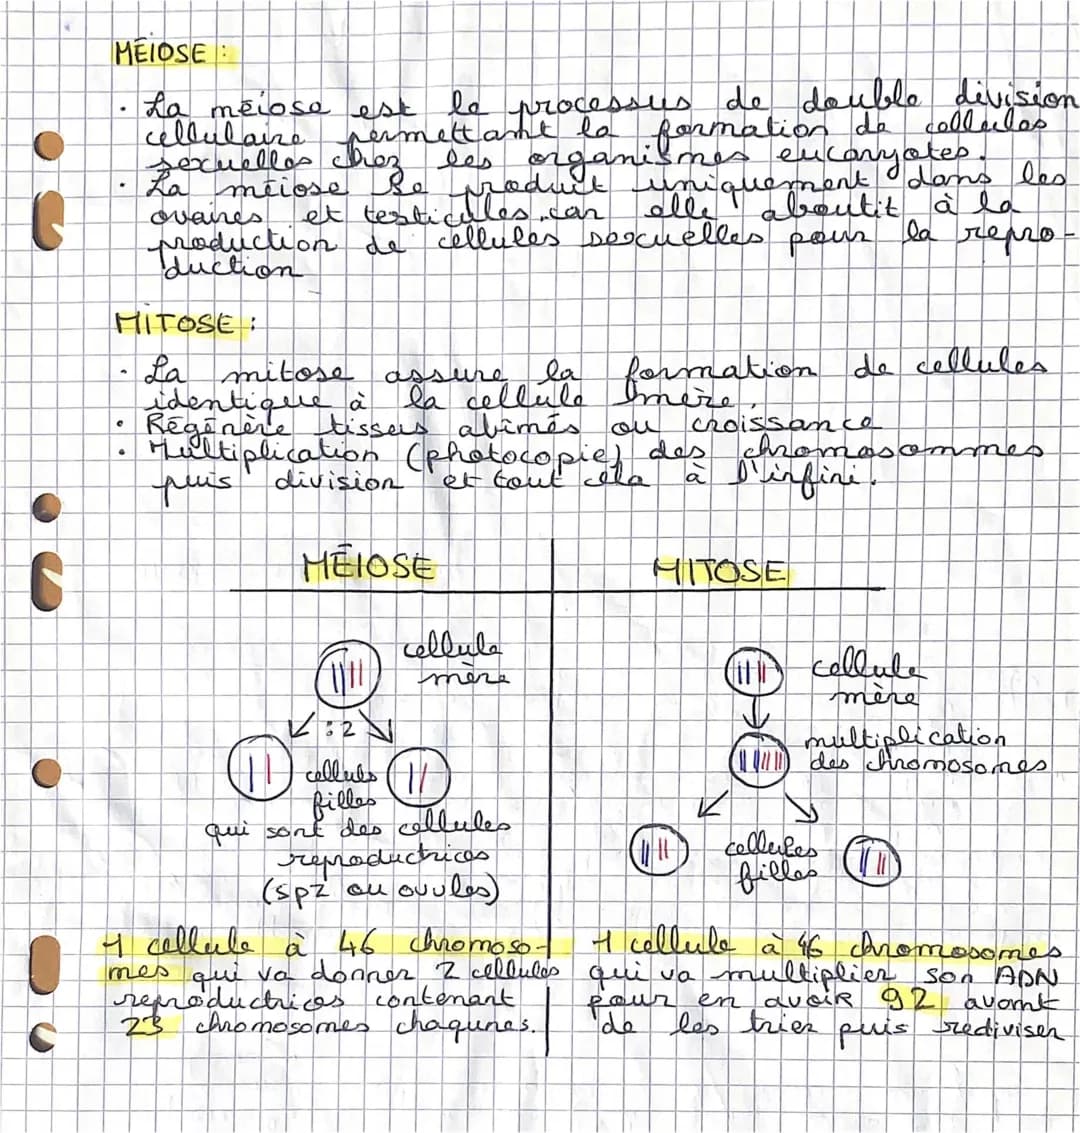 MÉIOSE :
· La méiose est le processus de double division
cellulaire permettant la formation de cellules
sexuelles chez les organismes eucaryotes.
· La méiose se produit uniquement dans les
ovaires et testicules, car elle aboutit à la
production de cellules sexuelles pour la repro-
duction
MITOSE :
· La mitose assure la formation de cellules
identique à la cellule mère,
· Régénère tissus abîmés ou croissance
· Multiplication (photocopie) des chromosommes
puis division et tout cela à l'infini.
MÉIOSE MITOSE
cellule
mère
: 2
celluls
filles
qui sont des cellules
reproductrices
(spz ou ovules)
1 cellule à 46 chromoso-
mes qui va donner 2 cellules
reproductrices contenant
23 chromosomes chaqunes.
cellule
mère
multiplication
des chromosomes
cellules
filles
1 cellule à 46 chromosomes
qui va multiplier son ADN
pour en avoir 92 avant
de les trier puis rediviser